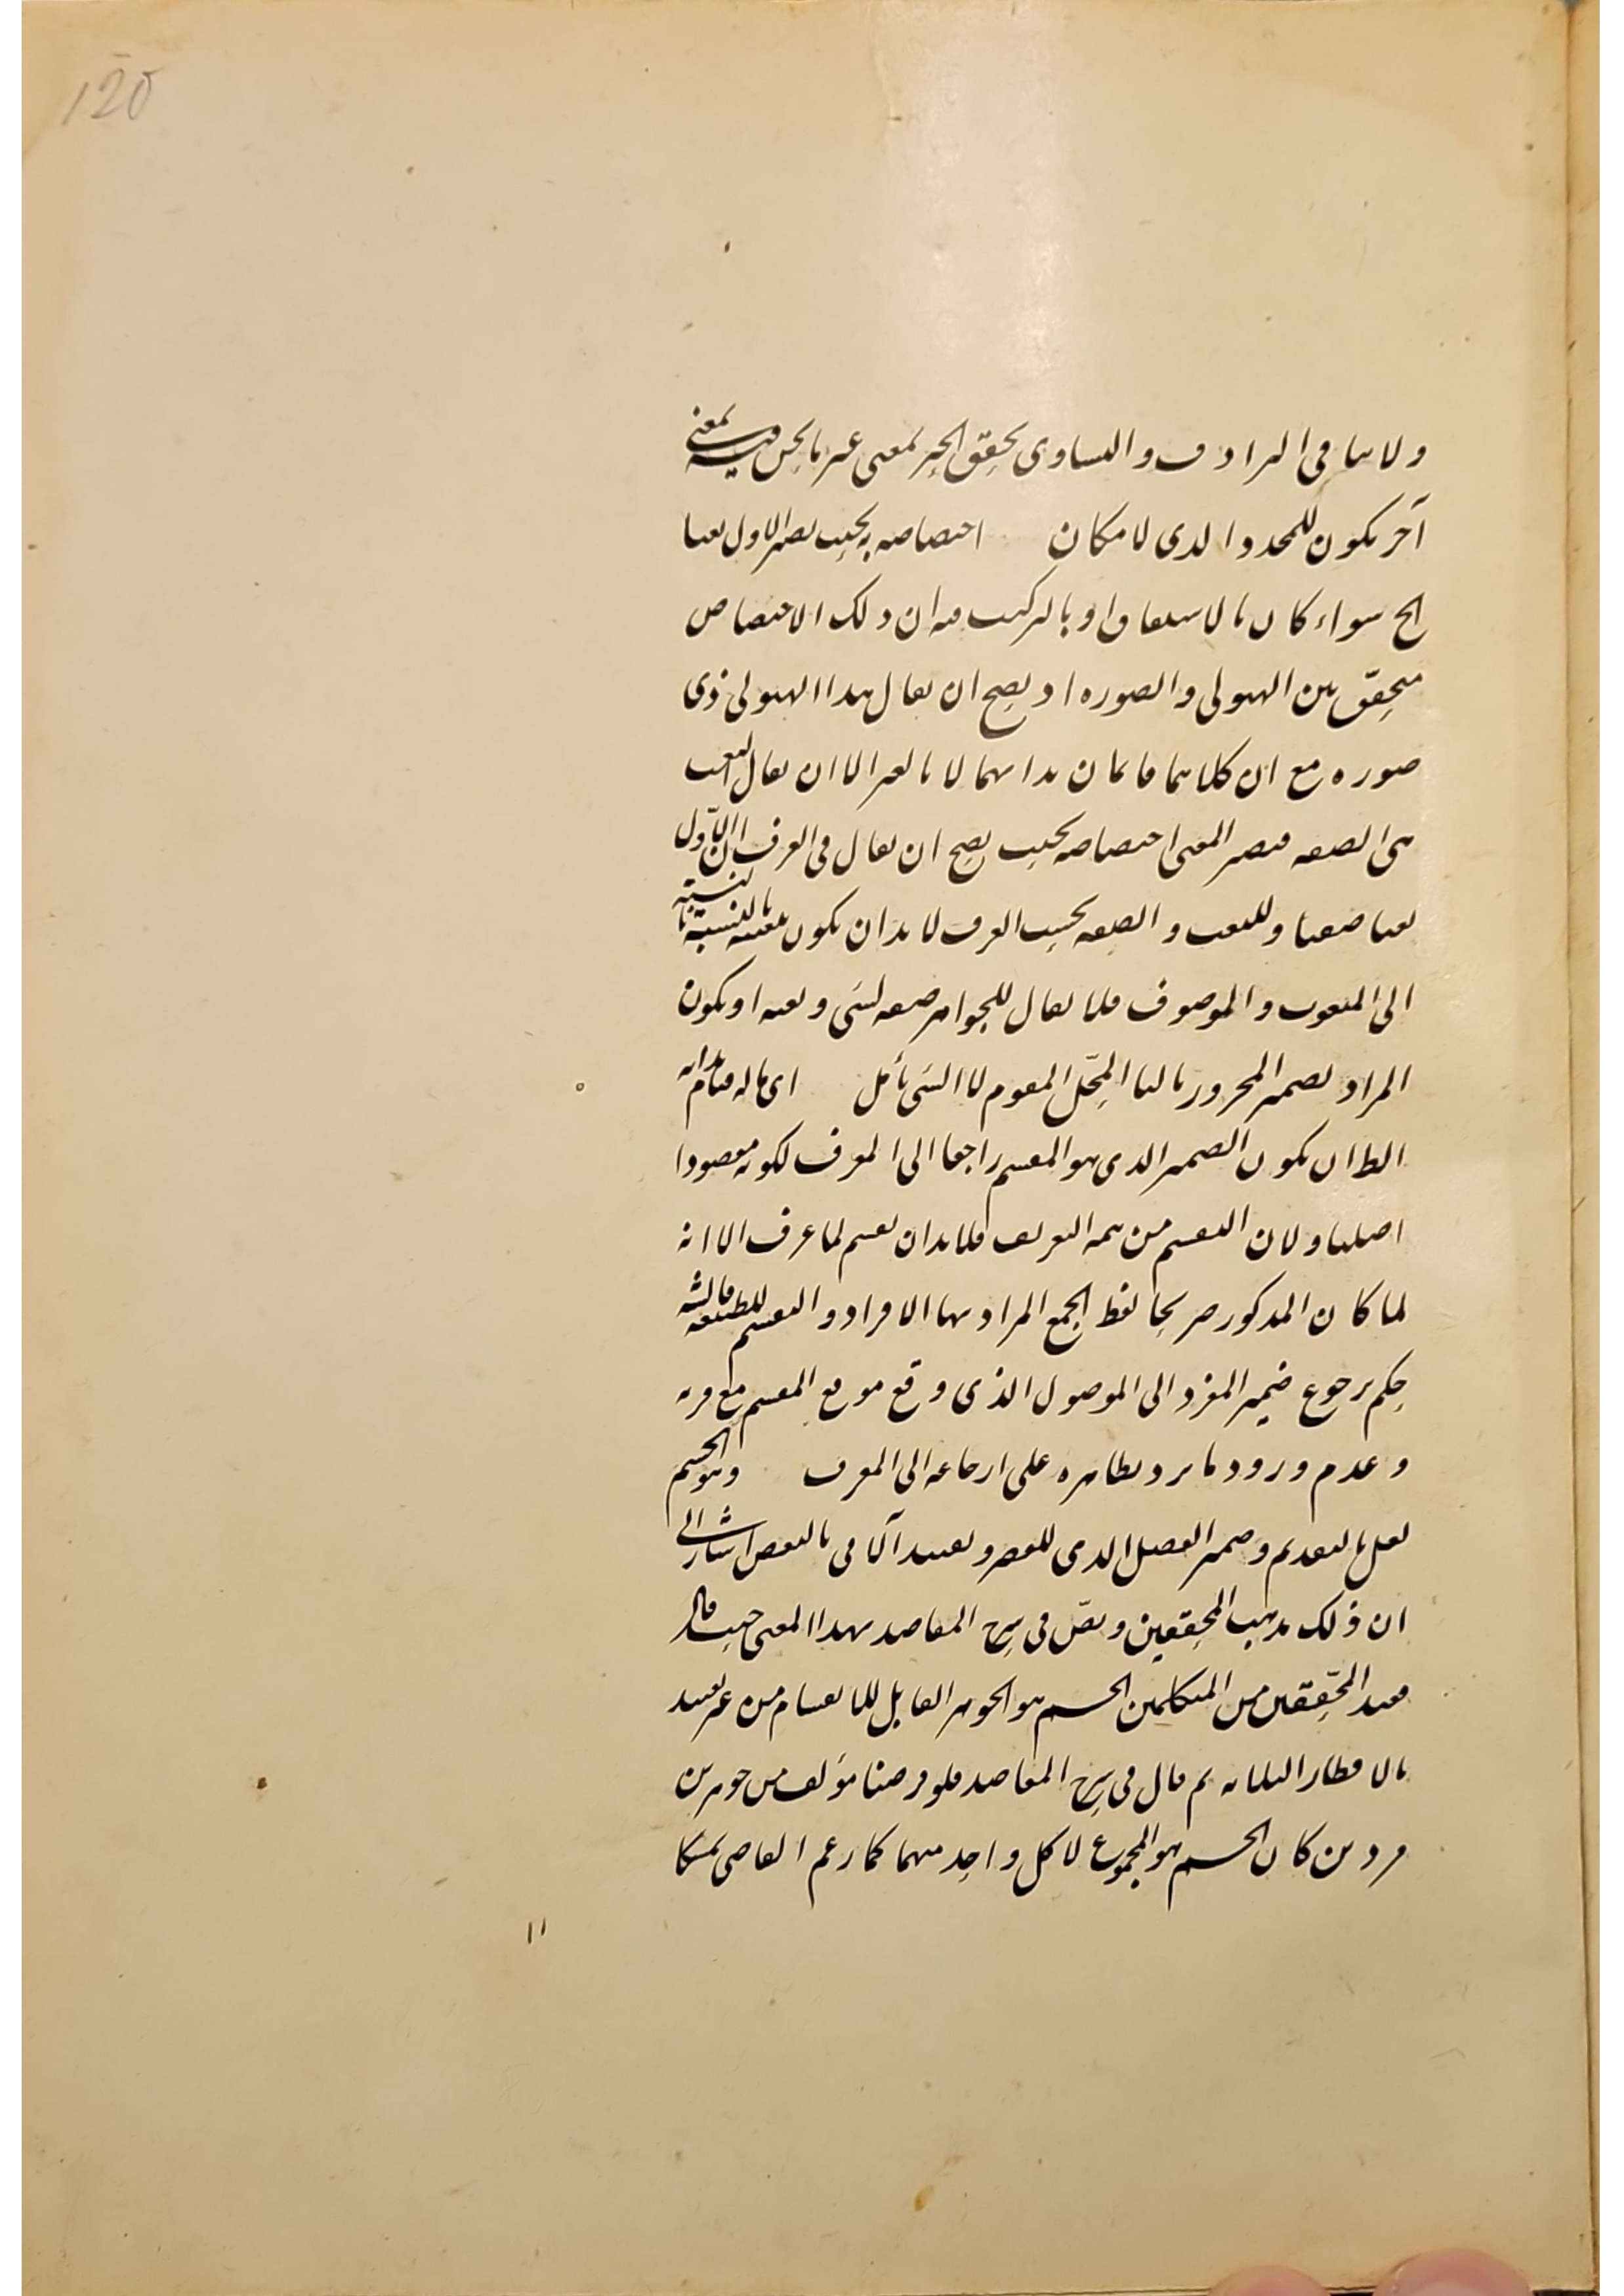 125
ولا ينافي الترادف والتساوي تحقق الحيز لمعنى غير ما نحن فيه بمعنى
آخر يكون للمحدد الذي لا مكان احتصاصه به بحيث يصير الاول نعتا
الخ سواء كان بالاشتقاق او بالتركيب فيه ان ذلك الاختصاص
متحقق بين الهيولى والصوره اذ يصح ان يقال هذا الهيولى ذى
صوره مع ان كلاهما قائمان بذاتهما لا بالغير الا ان يقال النعت
هى الصفه فيصير المعنى اختصاصه بحيث يصح ان يقال فى العرف ان الاول
نعتا صفتا وللنعت والصفه بحسب العرف لا بد ان يكون بالنسبة
الى المنعوت والموصوف فلا يقال للجواهر صفه لشى ونعته او يكون
المراد بضمير المجرور بالباء المحل المقوم لا الشى تأمل اى ما له قيام بذاته
الظ ان يكون الضمير الذى هو المقسم راجعا الى المعرف لكونه مقصودا
اصليا ولان التقسيم من تتمه التعريف فلا بد ان يقسم لما عرف الا انه
لما كان المذكور صريحا لفظ الجمع المراد بها الافراد والتقسيم للطبيعه
حكم برجوع ضمير المفرد الى الموصول الذى وقع موقع المقسم مع قربه
وعدم ورود ما يرد بظاهره على ارجاعه الى المعرف وهو الجسم
لعل بالتقديم وضمير الفصل الذى للقصر وتقييد الثانى بالبعض اشار الى
ان ذلك مذهب المحققين ونص فى شرح المقاصد بهذا المعنى حيث قال
فعند المحققين من المتكلمين الجسم هو الجوهر القابل للانقسام من غير تقييد
بالاقطار الثلاثه ثم قال فى شرح المقاصد فلو فرضنا مؤلف من جوهرين
فردين كان الجسم هو المجموع لا كل واحد منهما كما زعم القاضى تمسكا
١١